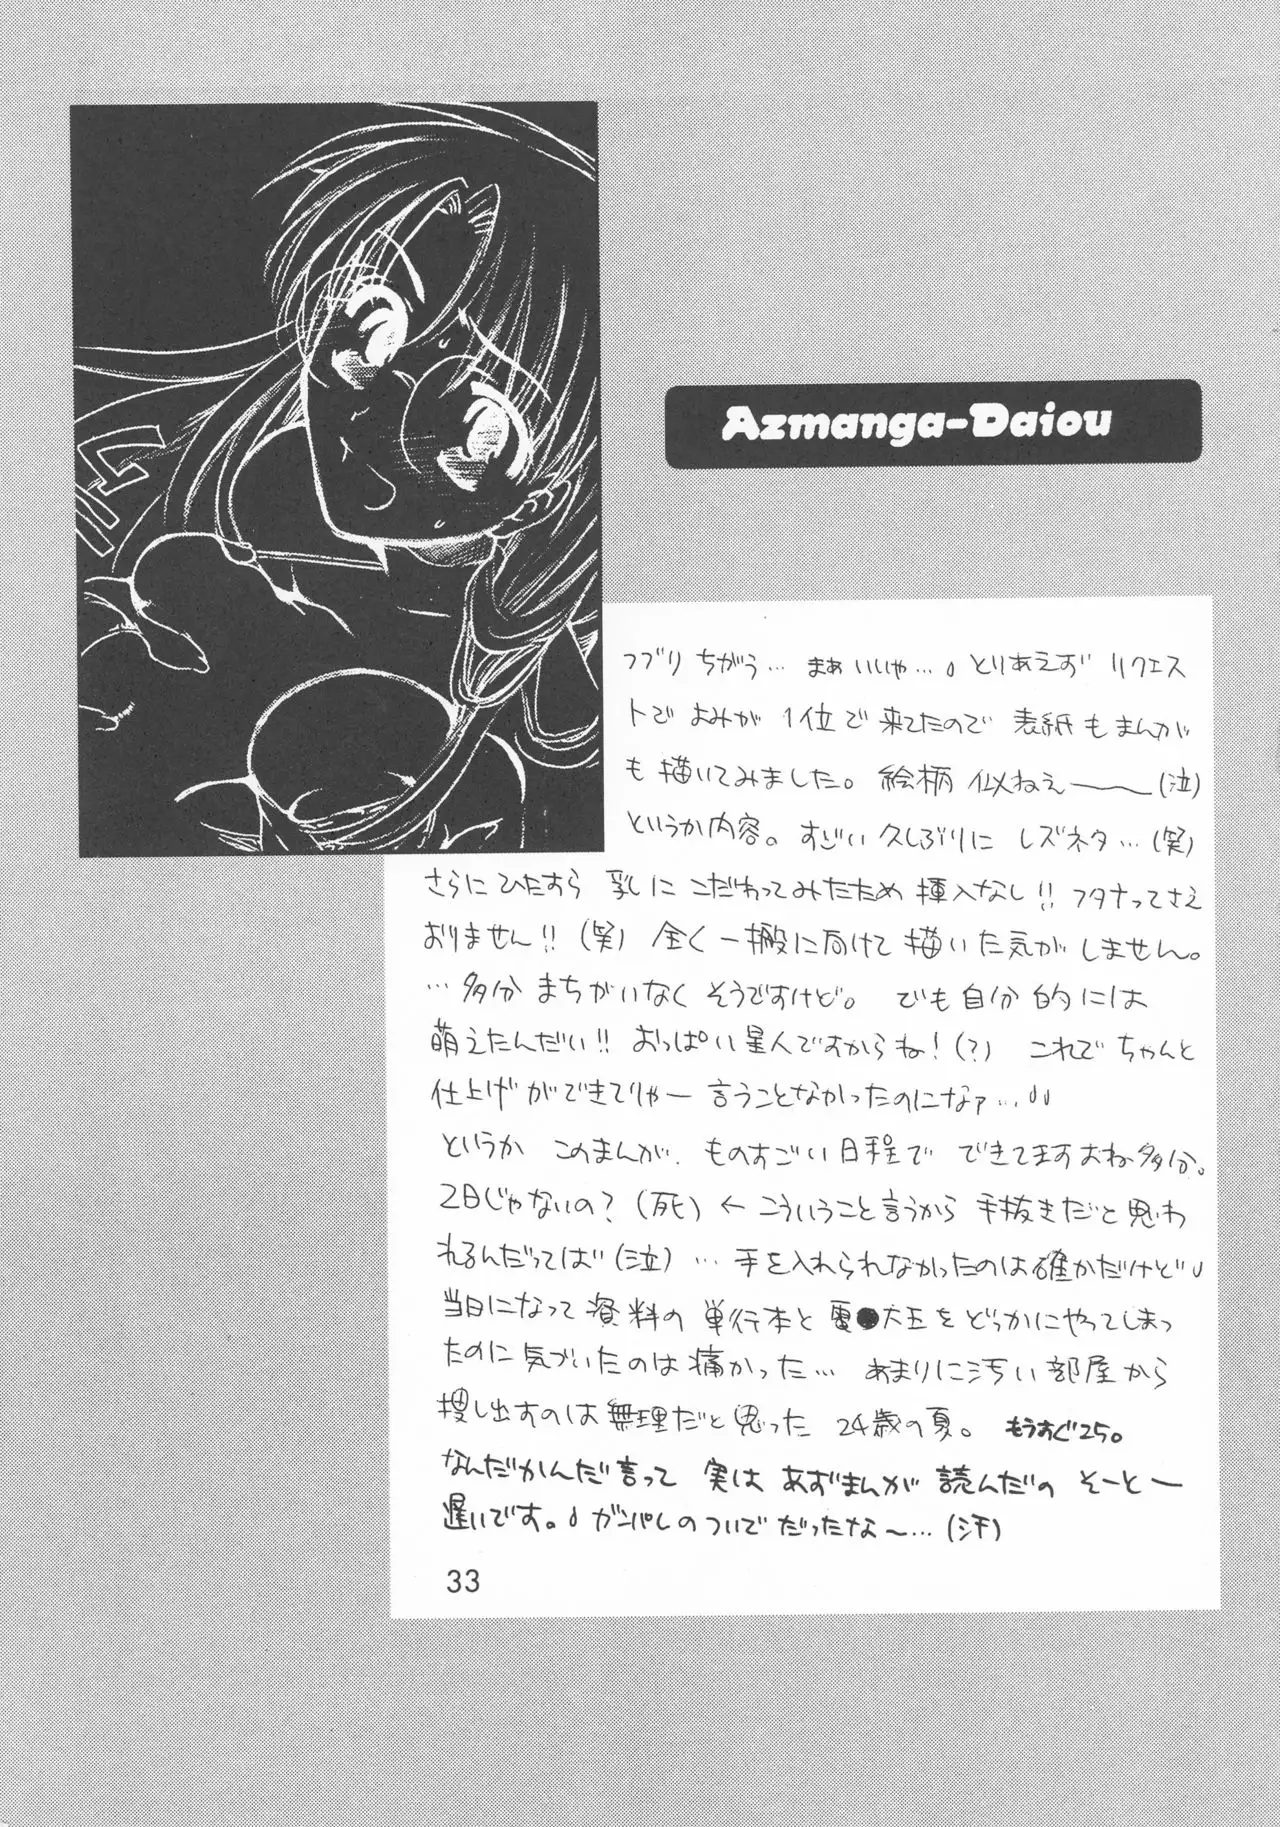 Azmanga-Daiou
フブリ ちがう… まぁいいや…。とりあえず リクエス
トで よみが 1位で来てたので 表紙もまんが
も描いてみました。絵柄似ねえ――(泣)
というか内容。すごい久しぶりに レズネタ…(笑)
さらにひたすら 乳に こだわってみたため 挿入なし!! フタナってさえ
おりません!!(笑) 全く一般に向けて描いた気がしません。
…多分まちがいなく そうですけど。でも自分的には
萌えたんだい!! おっぱい星人ですからね!(?) これで ちゃんと
仕上げができてりゃー 言うことなかったのになァ…
というか このまんが、ものすごい日程で できてますよね多分。
2日じゃないの?(死) ← こういうこと言うから 手抜きだと思わ
れるんだってば(泣)… 手を入れられなかったのは確かだけど
当日になって資料の 単行本と 電●大王を どっかにやってしまっ
たのに気づいたのは痛かった… あまりに汚い部屋から
捜し出すのは無理だと思った 24歳の夏。もうすぐ25。
なんだかんだ言って 実は あずまんが 読んだの そーとー
遅いです。ガンパレのついでだったな〜…(汗)
33